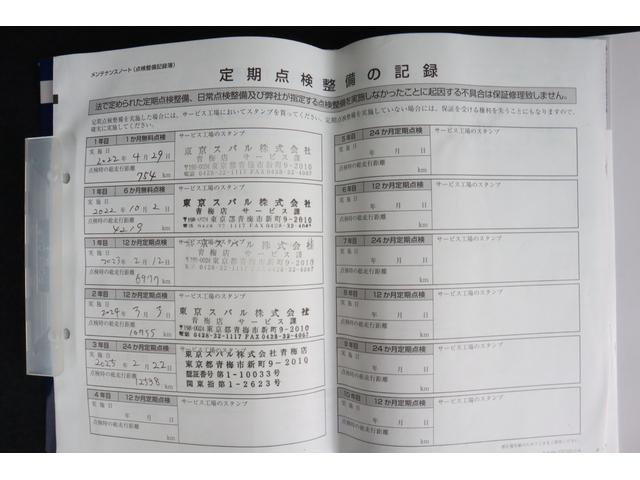 メンテナンスノート(点検整備記録簿)
定期点検整備の記録
法で定められた定期点検整備、日常点検整備及び弊社が指定する点検整備を実施しなかったことに起因する不具合は保証修理致しません。
定期点検整備を実施した場合には、サービス工場においてスタンプを貰ってください。定期点検整備を実施していない場合には、保証を受ける権利を失うことにもなりますので、
確実に実施してください。
1年目 1か月無料点検 サービス工場のスタンプ
実施日
2022年4月29日
点検時の総走行距離
754 km
東京スバル株式会社
青梅店 サービス課
〒198-0024 東京都青梅市新町9-2010
電話 0428-32-1117 FAX 0428-32-4067
1年目 6か月無料点検 サービス工場のスタンプ
実施日
2022年10月2日
点検時の総走行距離
4219 km
東京スバル株式会社
青梅店 サービス課
〒198-0024 東京都青梅市新町9-2010
電話 0428-32-1117 FAX 0428-32-4067
1年目 12か月定期点検 サービス工場のスタンプ
実施日
2023年2月12日
点検時の総走行距離
6977 km
東京スバル株式会社
青梅店 サービス課
〒198-0024 東京都青梅市新町9-2010
電話 0428-32-1117 FAX 0428-32-4067
2年目 12か月定期点検 サービス工場のスタンプ
実施日
2024年3月3日
点検時の総走行距離
10955 km
東京スバル株式会社
青梅店 サービス課
〒198-0024 東京都青梅市新町9-2010
電話 0428-32-1117 FAX 0428-32-4067
3年目 24か月定期点検 サービス工場のスタンプ
実施日
2025年2月22日
点検時の総走行距離
km
東京スバル株式会社青梅店
東京都青梅市新町9-2010
認証番号 第1-10033号
関東指第1-2623号
4年目 12か月定期点検 サービス工場のスタンプ
実施日
年 月 日
点検時の総走行距離
km
5年目 24か月定期点検 サービス工場のスタンプ
実施日
年 月 日
点検時の総走行距離
km
6年目 12か月定期点検 サービス工場のスタンプ
実施日
年 月 日
点検時の総走行距離
km
7年目 24か月定期点検 サービス工場のスタンプ
実施日
年 月 日
点検時の総走行距離
km
8年目 12か月定期点検 サービス工場のスタンプ
実施日
年 月 日
点検時の総走行距離
km
9年目 24か月定期点検 サービス工場のスタンプ
実施日
年 月 日
点検時の総走行距離
km
10年目 12か月定期点検 サービス工場のスタンプ
実施日
年 月 日
点検時の総走行距離
km